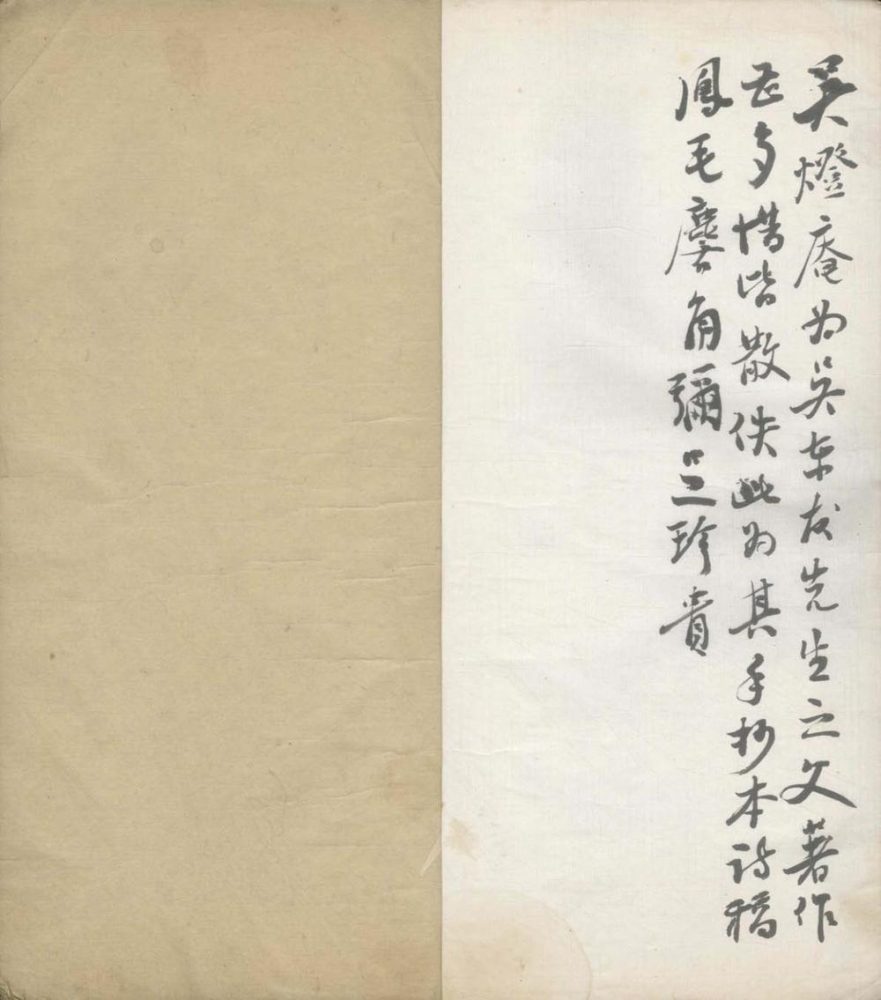 吴燈庵为吴东发先生之父著作
甚多惜皆散佚此为其手抄本诗稿
鳳毛麐角彌足珍貴